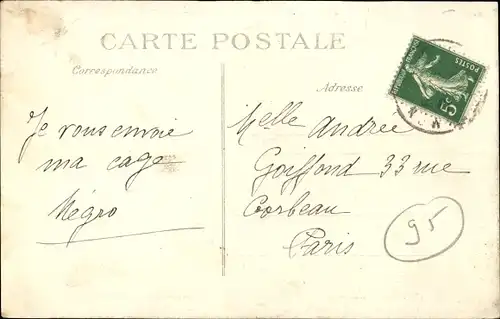 CARTE POSTALE
Correspondance
Adresse
POSTES
5c
Je vous envoie
ma cage
Négro
Melle Andrée
Goiffond 33 rue
Corbeau
Paris
95